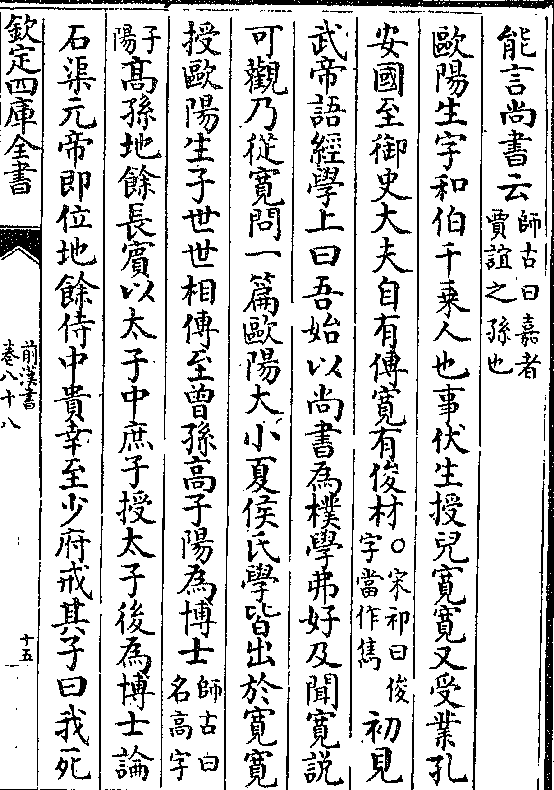 能言尚書云師古曰嘉者賈誼之孫也
歐陽生字和伯千乗人也事伏生授兒寛寛又受業孔
安國至御史大夫自有傳寛有俊材○宋祁曰俊字當作雋初見
武帝語經學上曰吾始以尚書為樸學弗好及聞寛說
可觀乃從寛問一篇歐陽大小夏侯氏學皆出於寛寛
授歐陽生子世世相傳至曾孫高子陽為博士師古曰名高字
子陽高孫地餘長賓以太子中庶子授太子後為博士論
石渠元帝即位地餘侍中貴幸至少府戒其子曰我死
欽定四庫全書
前漢書
卷八十八
十五